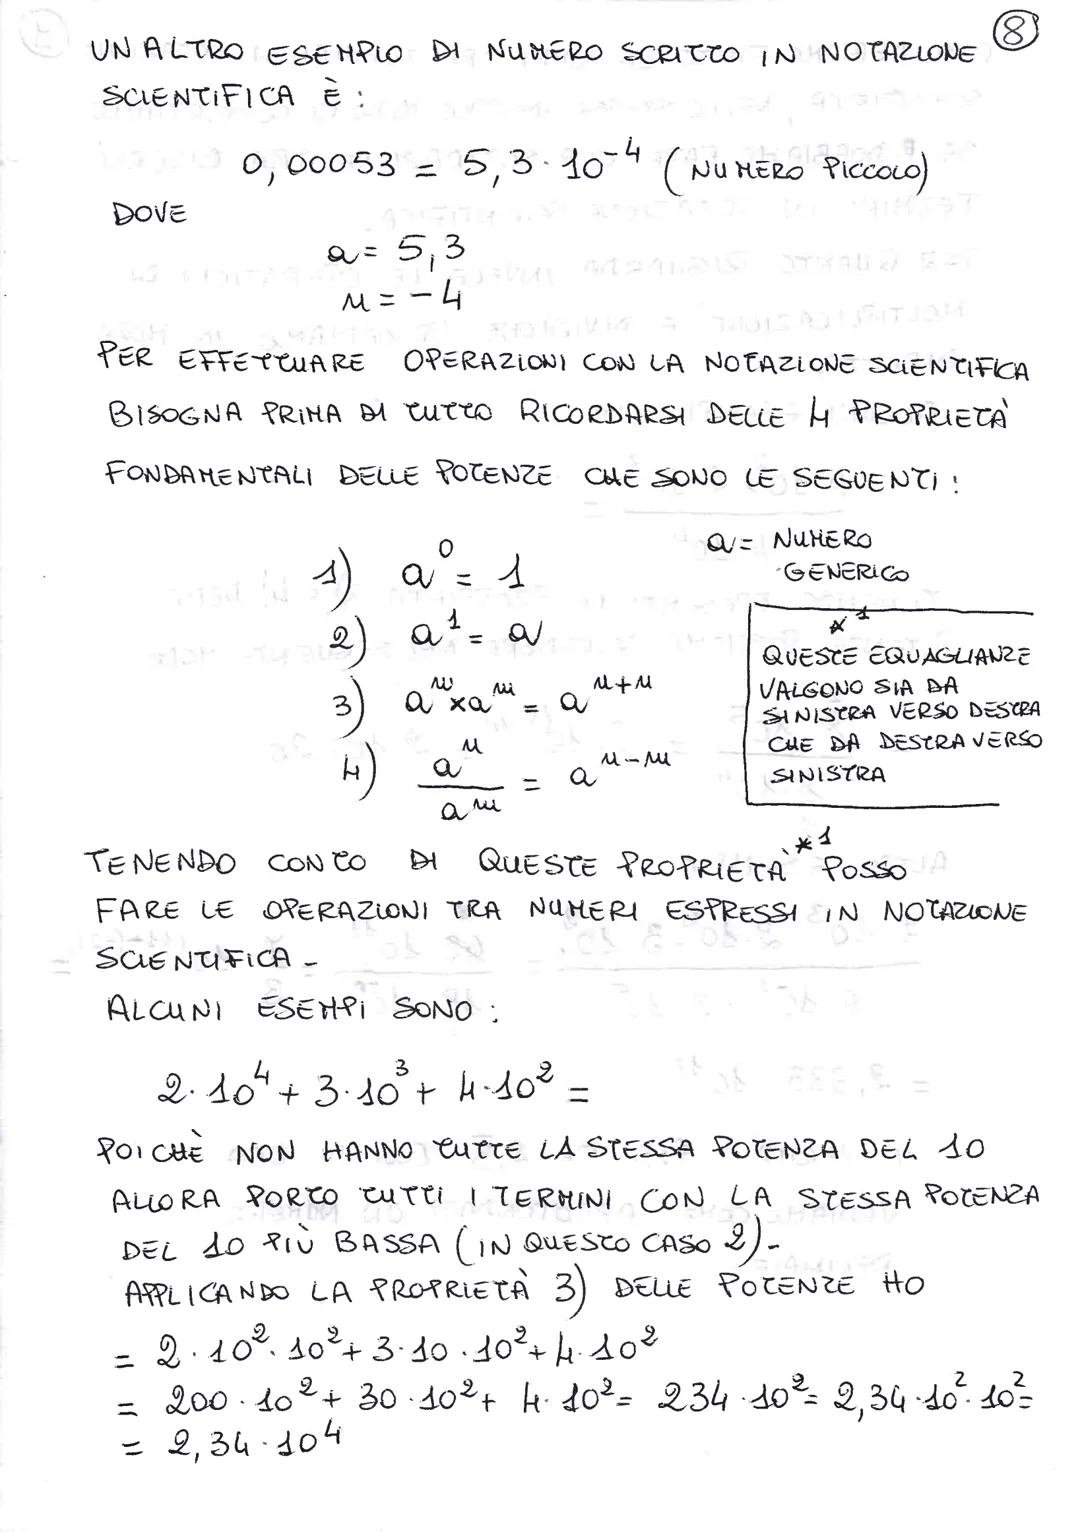 8
UN ALTRO ESEMPIO DI NUMERO SCRITTO IN NOTAZIONE
SCIENTIFICA È :
0,00053 = 5,3 · 10⁻⁴ (NUMERO PICCOLO)
DOVE
a = 5,3
n = -4
PER EFFETTUARE OPERAZIONI CON LA NOTAZIONE SCIENTIFICA
BISOGNA PRIMA DI TUTTO RICORDARSI DELLE 4 PROPRIETÀ
FONDAMENTALI DELLE POTENZE CHE SONO LE SEGUENTI :
a = NUMERO
GENERICO
1) a⁰ = 1
2) a¹ = a
3) aⁿ x aᵐ = aⁿ⁺ᵐ
4) aⁿ / aᵐ = aⁿ⁻ᵐ
*1
QUESTE EQUAGLIANZE
VALGONO SIA DA
SINISTRA VERSO DESTRA
CHE DA DESTRA VERSO
SINISTRA
TENENDO CONTO DI QUESTE PROPRIETÀ *1 POSSO
FARE LE OPERAZIONI TRA NUMERI ESPRESSI IN NOTAZIONE
SCIENTIFICA -
ALCUNI ESEMPI SONO :
2 · 10⁴ + 3 · 10³ + 4 · 10² =
POICHÈ NON HANNO TUTTE LA STESSA POTENZA DEL 10
ALLORA PORTO TUTTI I TERMINI CON LA STESSA POTENZA
DEL 10 PIÙ BASSA (IN QUESTO CASO 2) -
APPLICANDO LA PROPRIETÀ 3) DELLE POTENZE HO
= 2 · 10² · 10² + 3 · 10 · 10² + 4 · 10²
= 200 · 10² + 30 · 10² + 4 · 10² = 234 · 10² = 2,34 · 10² · 10² =
= 2,34 · 10⁴